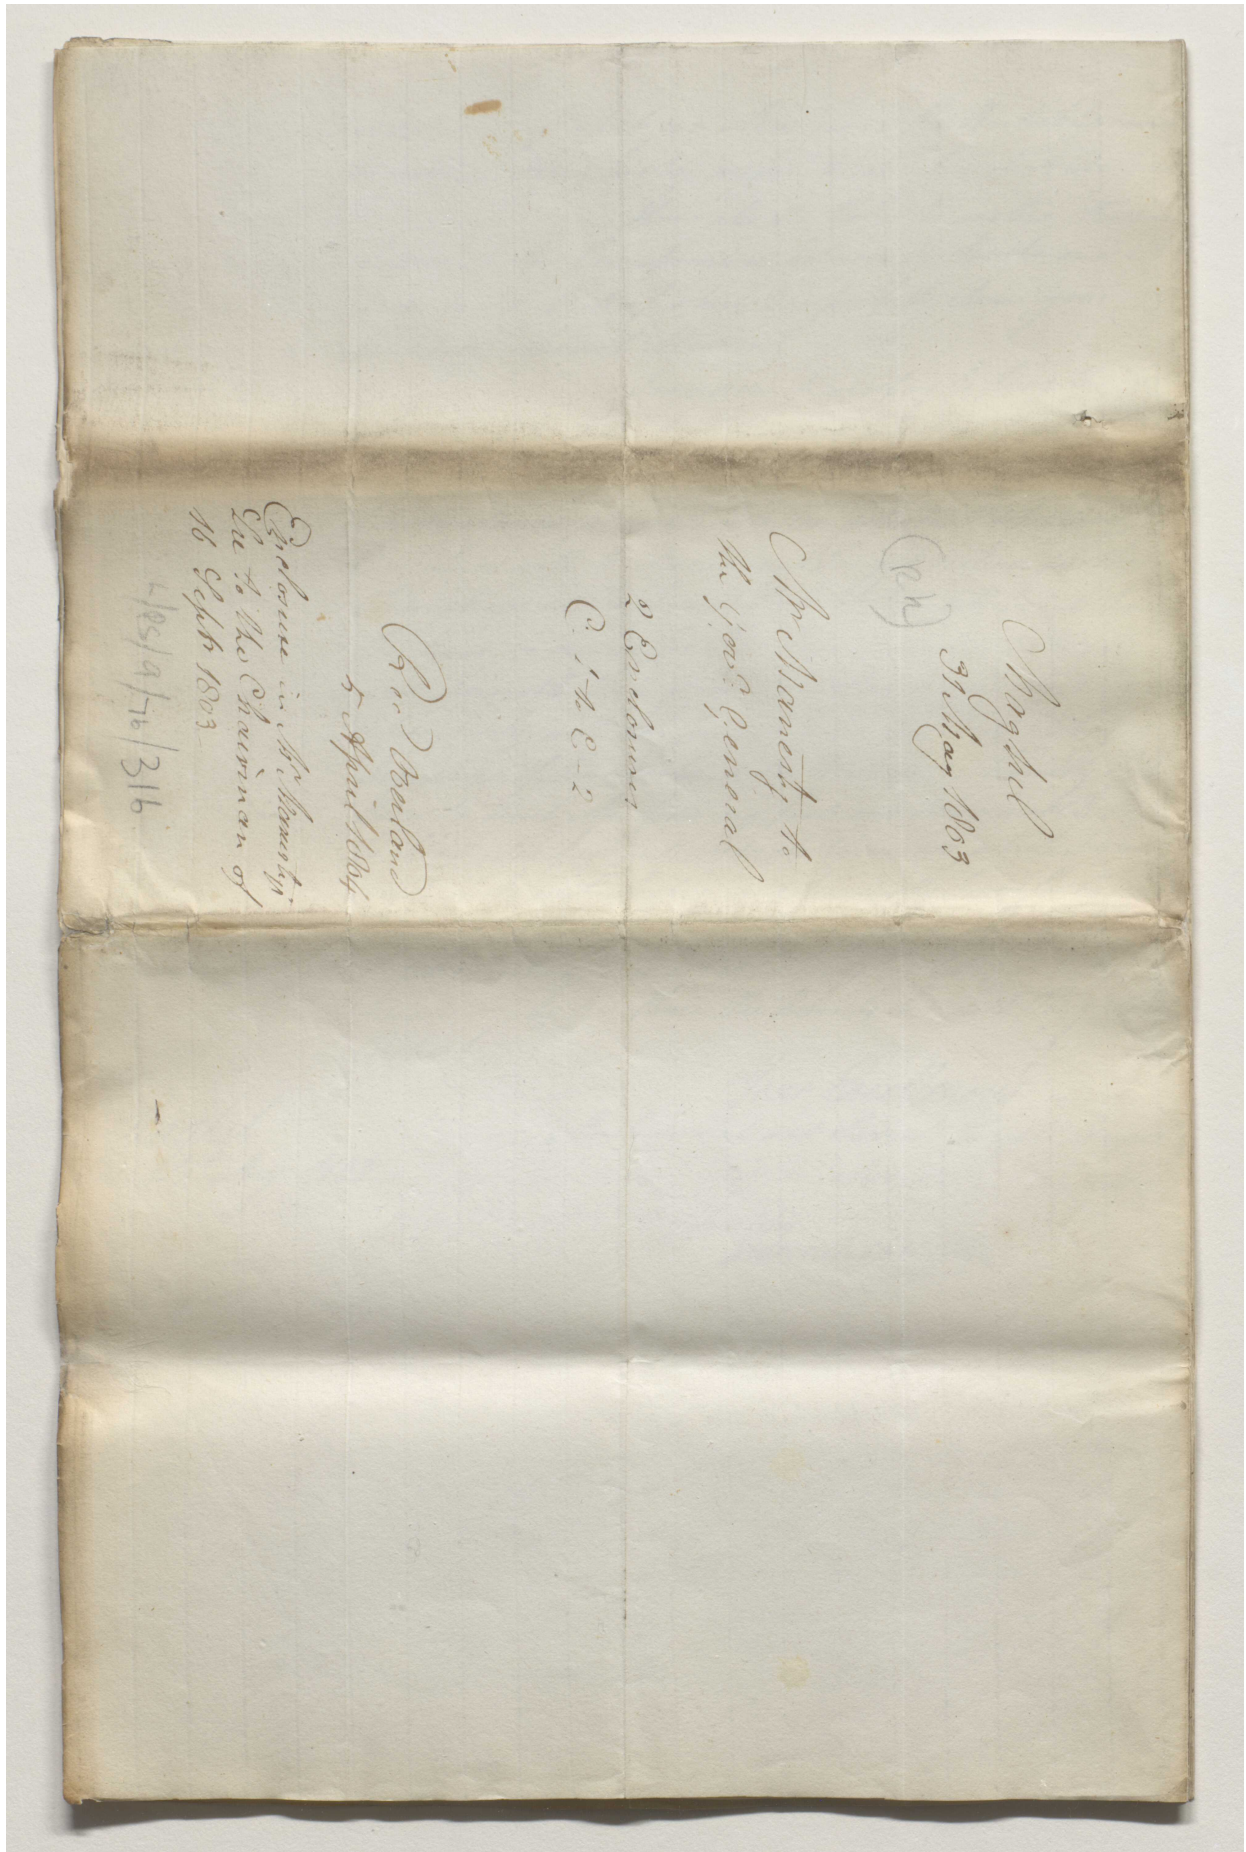 Maghil
31 May 1803
Mr Manesty to
the Govr. General
2 Enclosures
C. 1 & C - 2
Recd Overland
5 April 1804
Enclosure in Mr Manesty's
Lre to the Chairman of
16 Septr 1803
L/PS/9/76/316